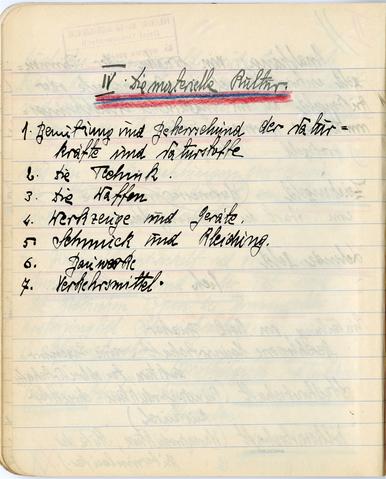 IV. Die materielle Kultur.
1. Benützung und Beherrschung der Natur=
kräfte und Naturstoffe
2. Die Technik.
3. Die Waffen
4. Werkzeuge und Geräte.
5 Schmuck und Kleidung.
6. Bauwerke
7. Verkehrsmittel.